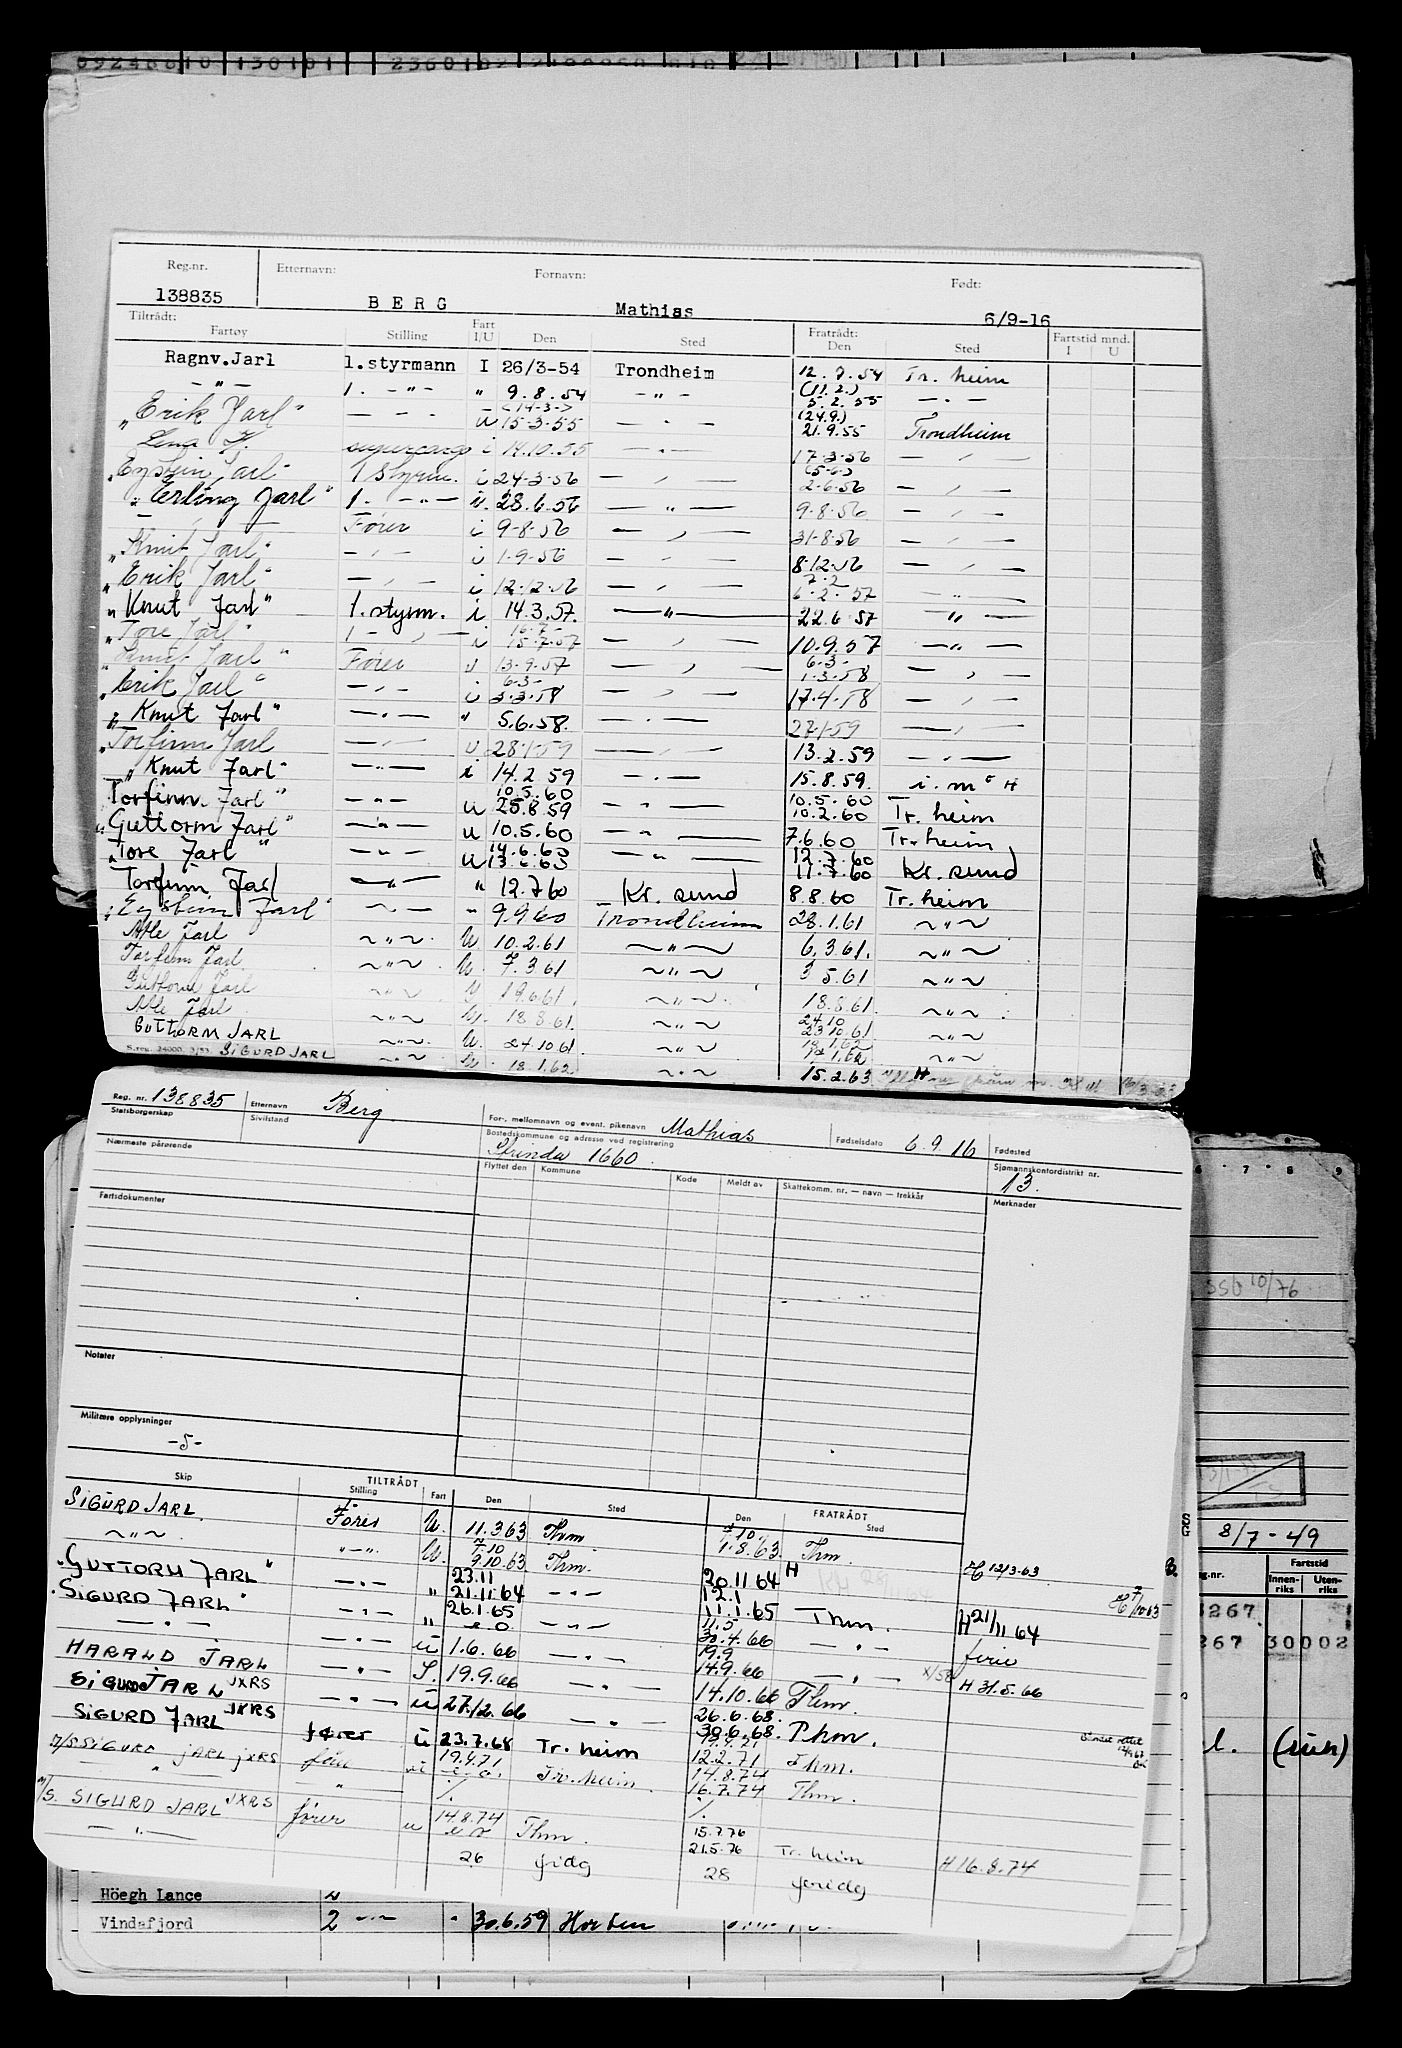 Reg.nr. Etternavn: Fornavn: Født:
138835 BERG Mathias 6/9-16
Tiltrådt: Fratrådt: Fartstid mnd.
Fartøy Stilling Fart I/U Den Sted Den Sted I U
Ragnv.Jarl 1.styrmann I 26/3-54 Trondheim 12.7.54 Tr. heim
— " — 1. — " — " 9.8.54 — " — (11.2.) 5.2.55 — " —
"Erik Jarl" — " — (14-3-) u 15-3-55 — " — (24.9.) 21.9.55 Trondheim
Lena supercargo i 14.10.55 — " — 17-3-56 — " —
"Eystein Jarl" 1 styrm. i 24-3-56 — " — (5-6-) 2-6-56 — " —
"Erling Jarl" 1. — " — i. 28.6.56 — " — 9-8-56 — " —
— Fører i 9-8-56 — " — 31-8-56 — " —
"Knut Jarl" — " — i 1-9-56 — " — 8-12-56 — " —
"Erik Jarl" — " — i 12-12-56 — " — 7-2- 6-2-57 — " —
"Knut Jarl" 1.styrm. i 14.3.57. — " — 22.6.57 — " —
"Tore Jarl" 1 — " — i 16-7- 15-7-57 — " — 10.9.57 — " —
"Knut Jarl" Fører i 13-9-57 — " — 6-3- 1-3-58 — " —
"Erik Jarl" — " — i 6-3- 3-3-58 — " — 17-4-58 — " —
"Knut Jarl" — " — " 5.6.58. — " — 27-1-59 — " —
"Torfinn Jarl — " — u 28-1-59 — " — 13.2.59 — " —
"Knut Jarl" — " — i 14.2.59 — " — 15.8.59. i. m. H
Torfinn Jarl" — " — u 10.5.60 25.8.59 — " — 10.5.60 10.2.60 Tr. heim
"Guttorm Jarl" — " — u 10.5.60 — " — 7.6.60 Tr. heim
"Tore Jarl" — " — u 14.6.60 — " — 12.7.60 11.7.60 Kr. sund
Torfinn Jarl — " — " 12.7.60 Kr. sund 8.8.60 Tr. heim
"Eystein Jarl" — " — " 9.9.60 Trondheim 28.1.61 ~ " ~
Atle Jarl ~ " ~ U. 10.2.61 ~ " ~ 6.3.61. ~ " ~
Torfinn Jarl ~ " ~ U. 7.3.61 ~ " ~ 3 5.61 ~ " ~
Guttorm Jarl ~ " ~ U 19.6.61. ~ " ~ 18.8.61 ~ " ~
Atle Jarl ~ " ~ U. 18.8.61. ~ " ~ 24.10 23.10.61 ~ " ~
GUTTORM JARL ~ " ~ U. 24.10.61 ~ " ~ 18.1.62 ~ " ~
SIGURD JARL ~ " ~ U. 18.1.62 ~ " ~ 15.2.63
Reg. nr. 138835 Etternavn Berg For-, mellomnavn og event. pikenavn Mathias Fødselsdato 6.9.16 Fødested
Statsborgerskap Sivilstand Bostedskommune og adresse ved registrering Strinda 1660. Sjømannskontordistrikt nr. 13.
Nærmeste pårørende Flyttet den Kommune Kode Meldt av Skattekomm. nr. — navn — trekkår Merknader
Fartsdokumenter
Notater
Militære opplysninger
-5-
TILTRÅDT FRATRÅDT
Skip Stilling Fart Den Sted Den Sted
SIGURD JARL. Fører U. 11.3.63 Thm. 7.10. 1.8.63. Thm. H 12/3-63
~ " ~ " — " U. 7.10 9.10.63 Thm. 20.11.64 H
"GUTTORM JARL" — " — " 23.11 21.11.64 — " — 12.1 11.1.65 Thm. H 21/11 64
"SIGURD JARL" — " — " 26.1.65 e.o. — " — 11.5 30.4.66 — " — ferie
— " — — " — u 1.6.66 — " — 19.9 14.9.66 — " — H 31.5.66
HARALD JARL — " — S. 19.9.66 — " — 14.10.66 Thm.
SIGURD JARL JXRS — " — u 27.12.66 — " — 26.6.68. 30.6.68. Thm.
SIGURD JARL JXRS fører u 23.7.68 Tr. heim 19.4.71 12.2.71 Thm.
M/S SIGURD JARL JXRS fører u 19.4.71 e.o. Tr. heim 14.8.74 16.7.74 Thm.
" " ./. ./.
M/S. SIGURD JARL JXRS fører u 14.8.74 e o Thm. 15.7.76 21.5.76 Tr. heim H 16.8.74
— " — 26 28
Höegh Lance
Vindafjord 2 — " — " 30.6.59 Horten
6 7 8 9
10/76
8/7 - 49
Fartstid
Innenriks Utenriks
267
267 30002